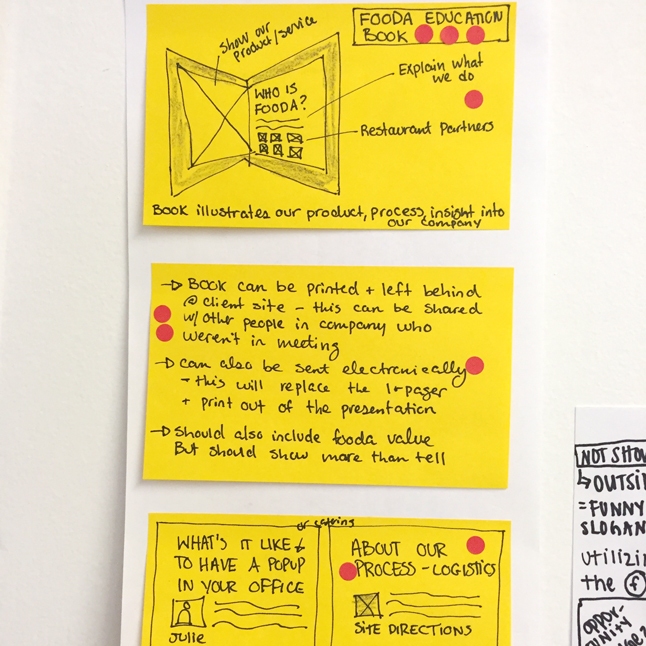 FOODA EDUCATION
BOOK
Show our
product/service
WHO IS
FOODA?
Explain what
we do
Restaurant Partners
BOOK illustrates our product, process, insight into
our company
→ BOOK can be printed + left behind
@ client site - this can be shared
w/ other people in company who
weren't in meeting
→ can also be sent electronically
- this will replace the 1-pager
+ print out of the presentation
→ Should also include fooda value
But should show more than tell
or catering
WHAT'S IT LIKE
TO HAVE A POPUP
IN YOUR OFFICE
Julie
ABOUT OUR
PROCESS - LOGISTICS
SITE DIRECTIONS
NOT SHO
↳ OUTSI
= FUNNY
SLOGAN
utilizin
the f
oppor-
tunity